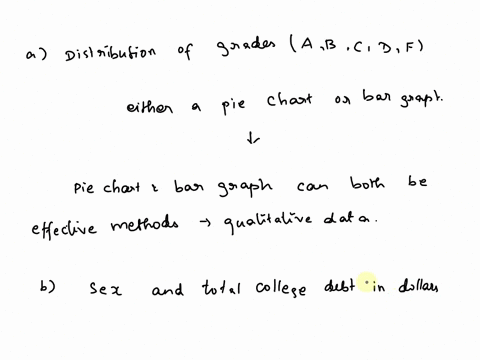 a) Distribution of grades (A, B, C, D, F)
either a pie chart or bar graph.
↓
Pie chart & bar graph can both be
effective methods → qualitative data.
b) Sex and total college debt in dollars